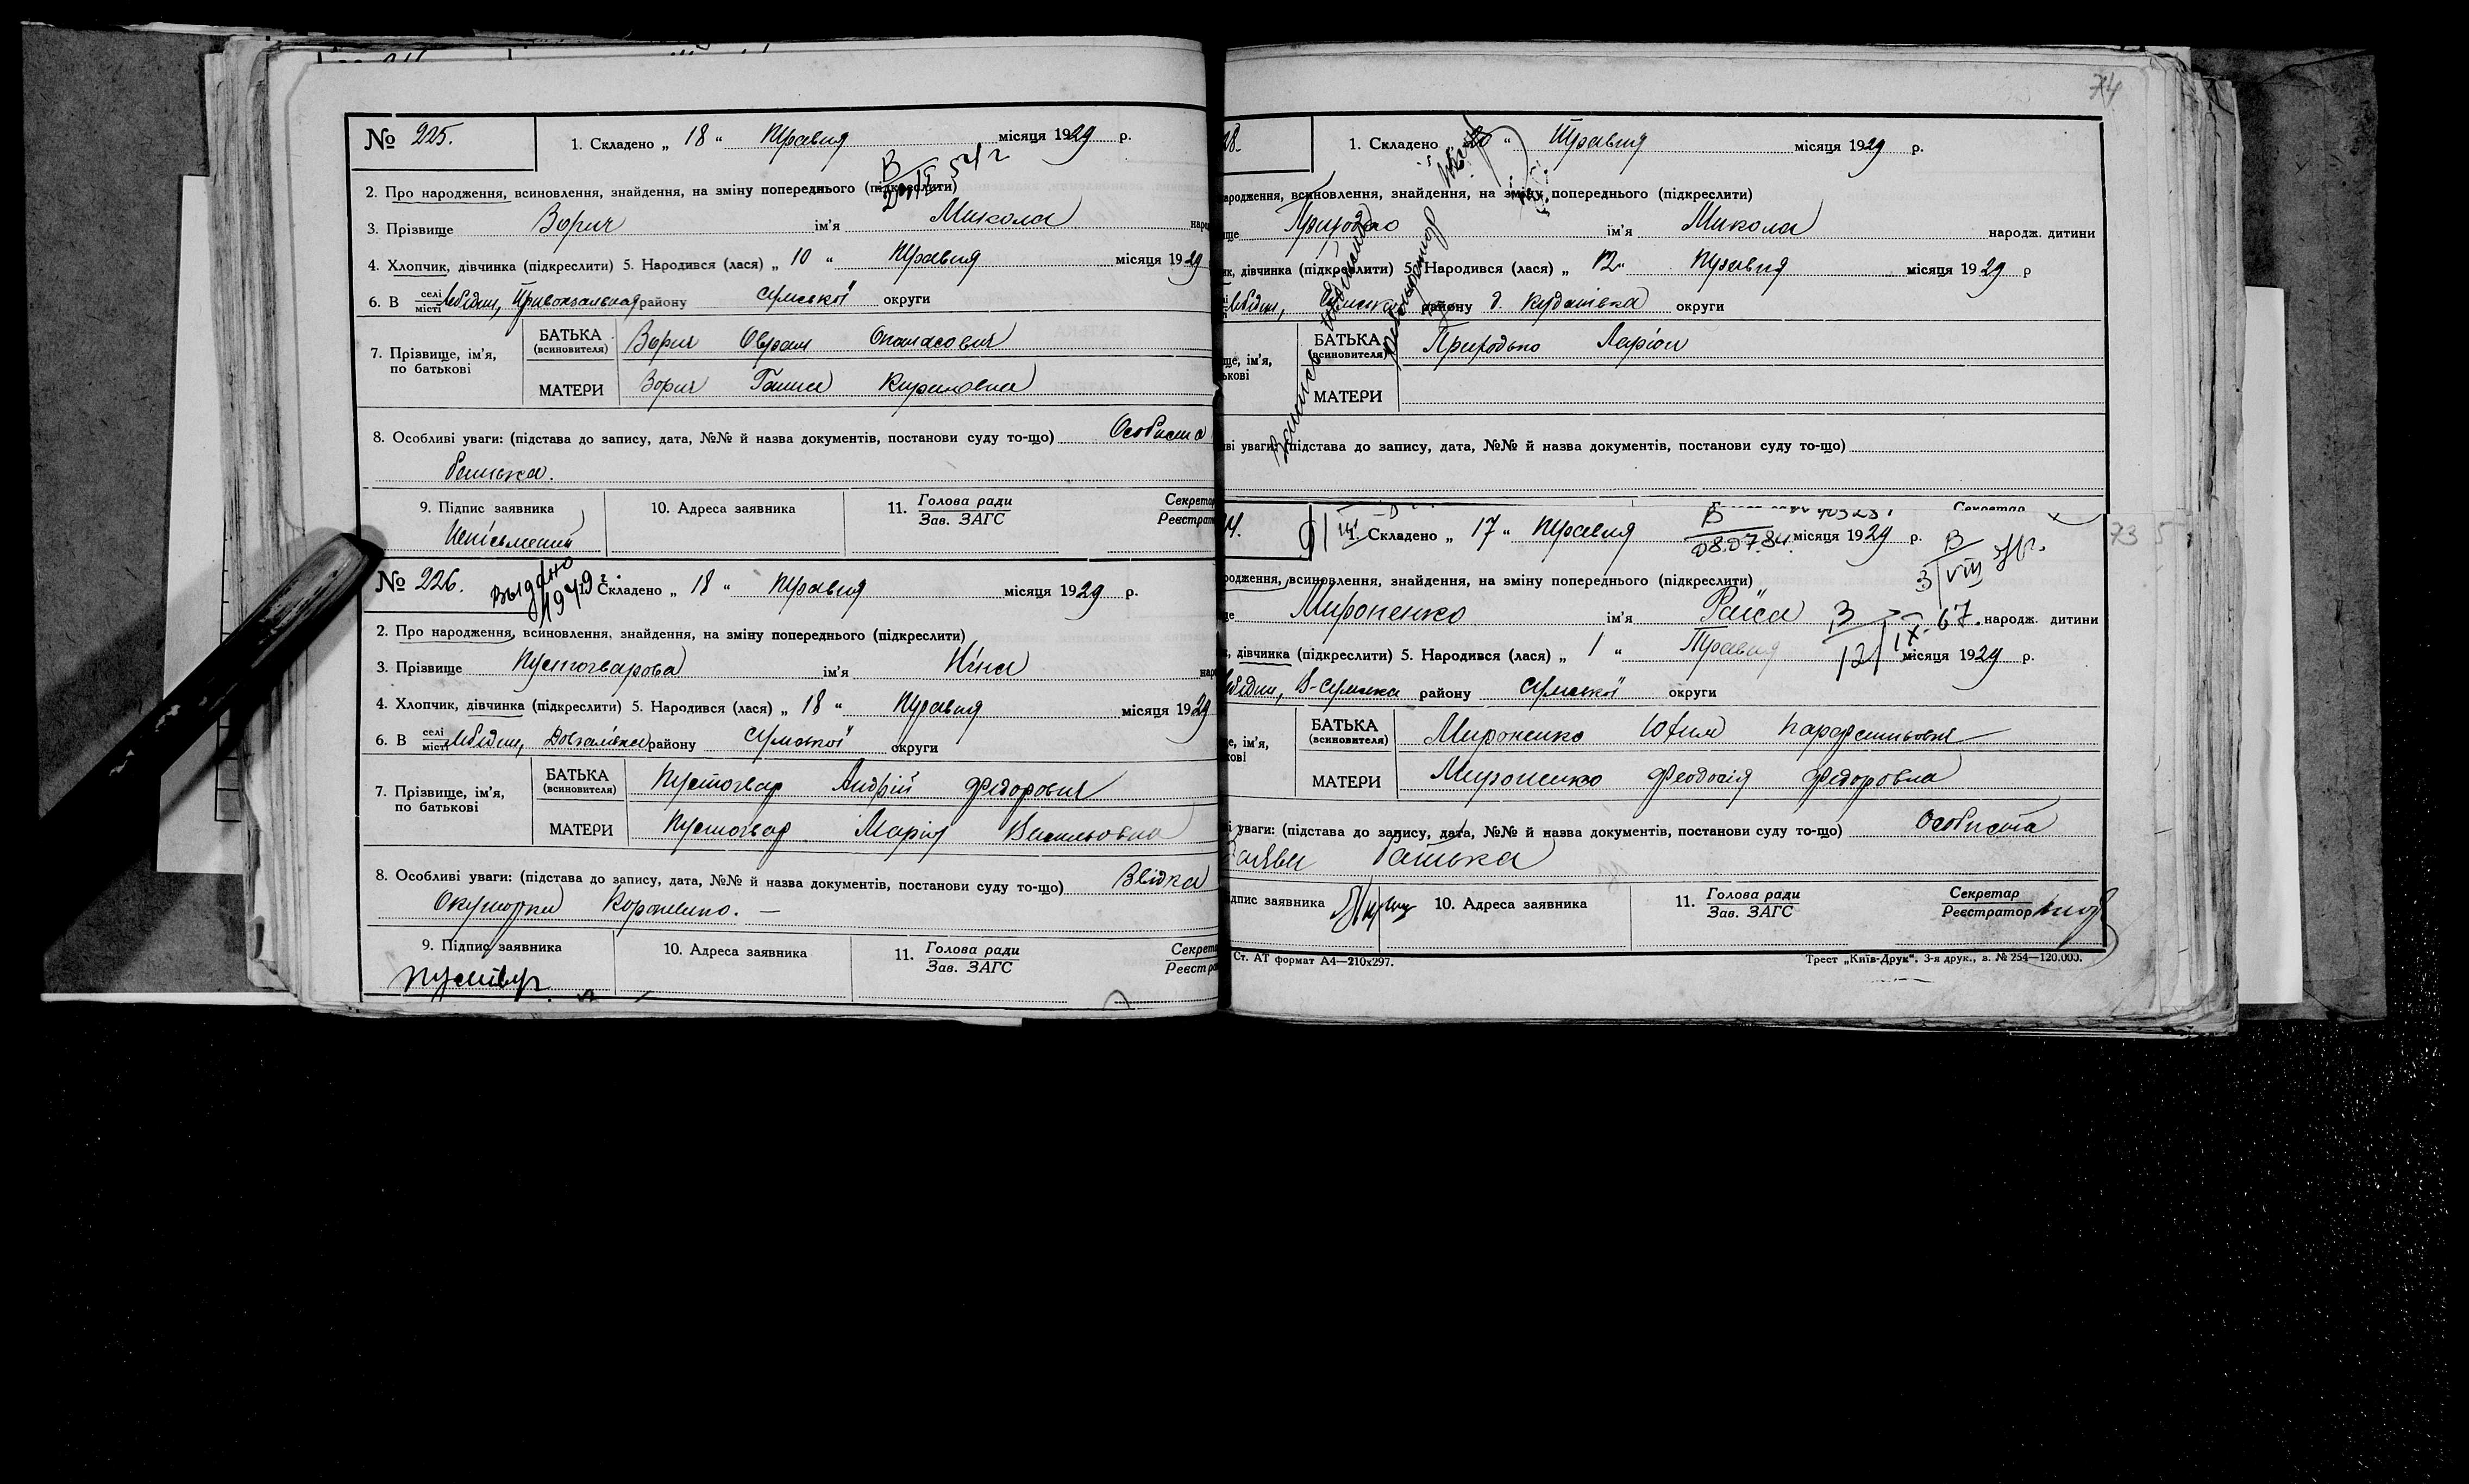 № 225.
1. Складено „ 18 “ Травня місяця 1929 р.
В
54 г
2. Про народження, всиновлення, знайдення, на зміну попереднього (підкреслити)
3. Прізвище Зорич ім'я Микола
4. Хлопчик, дівчинка (підкреслити) 5. Народився (лася) „ 10 “ Травня місяця 1929
6. В селі місті Лебідин, Привокзальная району Сумської округи
7. Прізвище, ім'я, по батькові
БАТЬКА (всиновителя) Зорич Овраам Опанасович
МАТЕРИ Зорич Ганна Кириловна
8. Особливі уваги: (підстава до запису, дата, №№ й назва документів, постанови суду то-що) Особиста
батька.
9. Підпис заявника
Неписьмений
10. Адреса заявника
11. Голова ради
Зав. ЗАГС
Секретар
Реєстрат
№ 226.
Выдано
1949 г.
1. Складено „ 18 “ Травня місяця 1929 р.
2. Про народження, всиновлення, знайдення, на зміну попереднього (підкреслити)
3. Прізвище Пустогварова ім'я Ніна
4. Хлопчик, дівчинка (підкреслити) 5. Народився (лася) „ 18 “ Травня місяця 1929
6. В селі місті Лебідин, Довгалівка району Сумської округи
7. Прізвище, ім'я, по батькові
БАТЬКА (всиновителя) Пустогвар Андрій Федорович
МАТЕРИ Пустогвар Марія Васильовна
8. Особливі уваги: (підстава до запису, дата, №№ й назва документів, постанови суду то-що) Звідка
Окушорки
9. Підпис заявника
10. Адреса заявника
11. Голова ради
Зав. ЗАГС
Секрета
Реєстра
74
28.
1. Складено „ 20 “ Травня місяця 1929 р.
ародження, всиновлення, знайдення, на зміну попереднього (підкреслити)
ще Природько ім'я Микола народж. дитини
ик, дівчинка (підкреслити) 5. Народився (лася) „ 12 “ Травня місяця 1929 р
Лебідин, Сумська району д. Курданівка округи
ще, ім'я,
ькові
БАТЬКА (всиновителя) Природько Ларіон
МАТЕРИ
Запись
ві уваги: (підстава до запису, дата, №№ й назва документів, постанови суду то-що)
Секретар
1. Складено „ 17 “ Травня місяця 1929 р.
В
08.07.84.
В
3 VIII
73
родження, всиновлення, знайдення, на зміну попереднього (підкреслити)
ще Мироненко ім'я Раїса народж. дитини
В
12 IX-67.
, дівчинка (підкреслити) 5. Народився (лася) „ 1 “ Травня місяця 1929 р.
Лебідин, В-Сумська району Сумської округи
е, ім'я,
кові
БАТЬКА (всиновителя) Мироненко Юхим
МАТЕРИ Мироненко Феодосія Федоровна
і уваги: (підстава до запису, дата, №№ й назва документів, постанови суду то-що) Особиста
заява батька
дпис заявника
10. Адреса заявника
11. Голова ради
Зав. ЗАГС
Секретар
Реєстратор
Ст. АТ формат А4—210x297.
Трест „Київ-Друк“. 3-я друк., з. № 254—120.000.